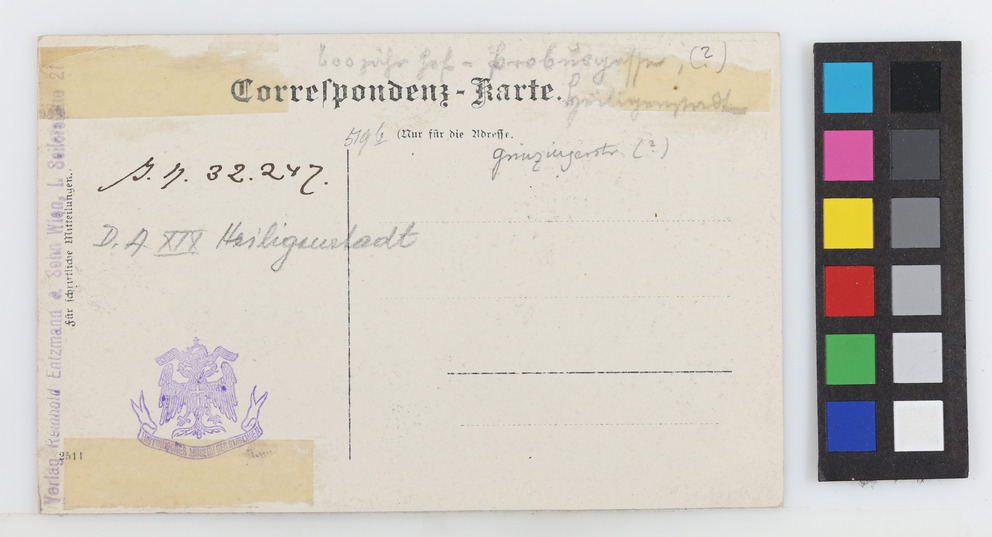 Hof - Probusgasse, (?)
Heiligenstadt
Correspondenz-Karte.
519
(Nur für die Adresse.
Grinzingerstr. (?)
32.247.
D. A XIX Heiligenstadt
Für schriftliche Mitteilungen.
Verlag Reinhold Entzmann & Sohn Wien, I. Seilerstätte 21
2511